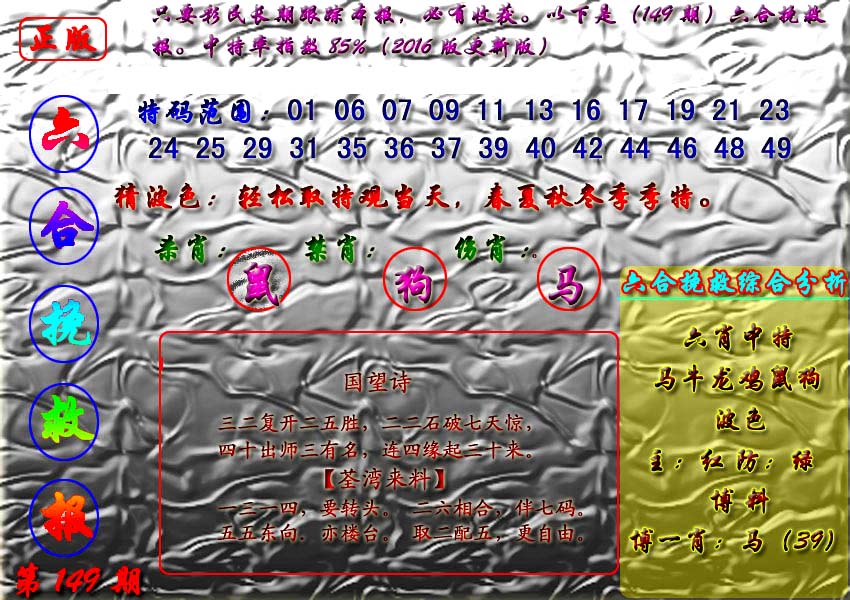 正版
只要彩民长期跟踪本报，必有收获。以下是（149期）六合挽救
报。中特率指数85%（2016版更新版）
六
合
挽
救
报
第149期
特码范围：01 06 07 09 11 13 16 17 19 21 23
24 25 29 31 35 36 37 39 40 42 44 46 48 49
猜波色：轻松取特观当天，春夏秋冬季季特。
杀肖： 禁肖： 伤肖：。
鼠 狗 马
国望诗
三二复开二五胜，二二石破七天惊，
四十出师三有名，连四缘起三十来。
【荃湾来料】
一三一四，要转头。 二六相合，伴七码。
五五东向，亦楼台。 取二配五，更自由。
六合挽救综合分析
六肖中特
马牛龙鸡鼠狗
波色
主：红防：绿
博料
博一肖：马（39）